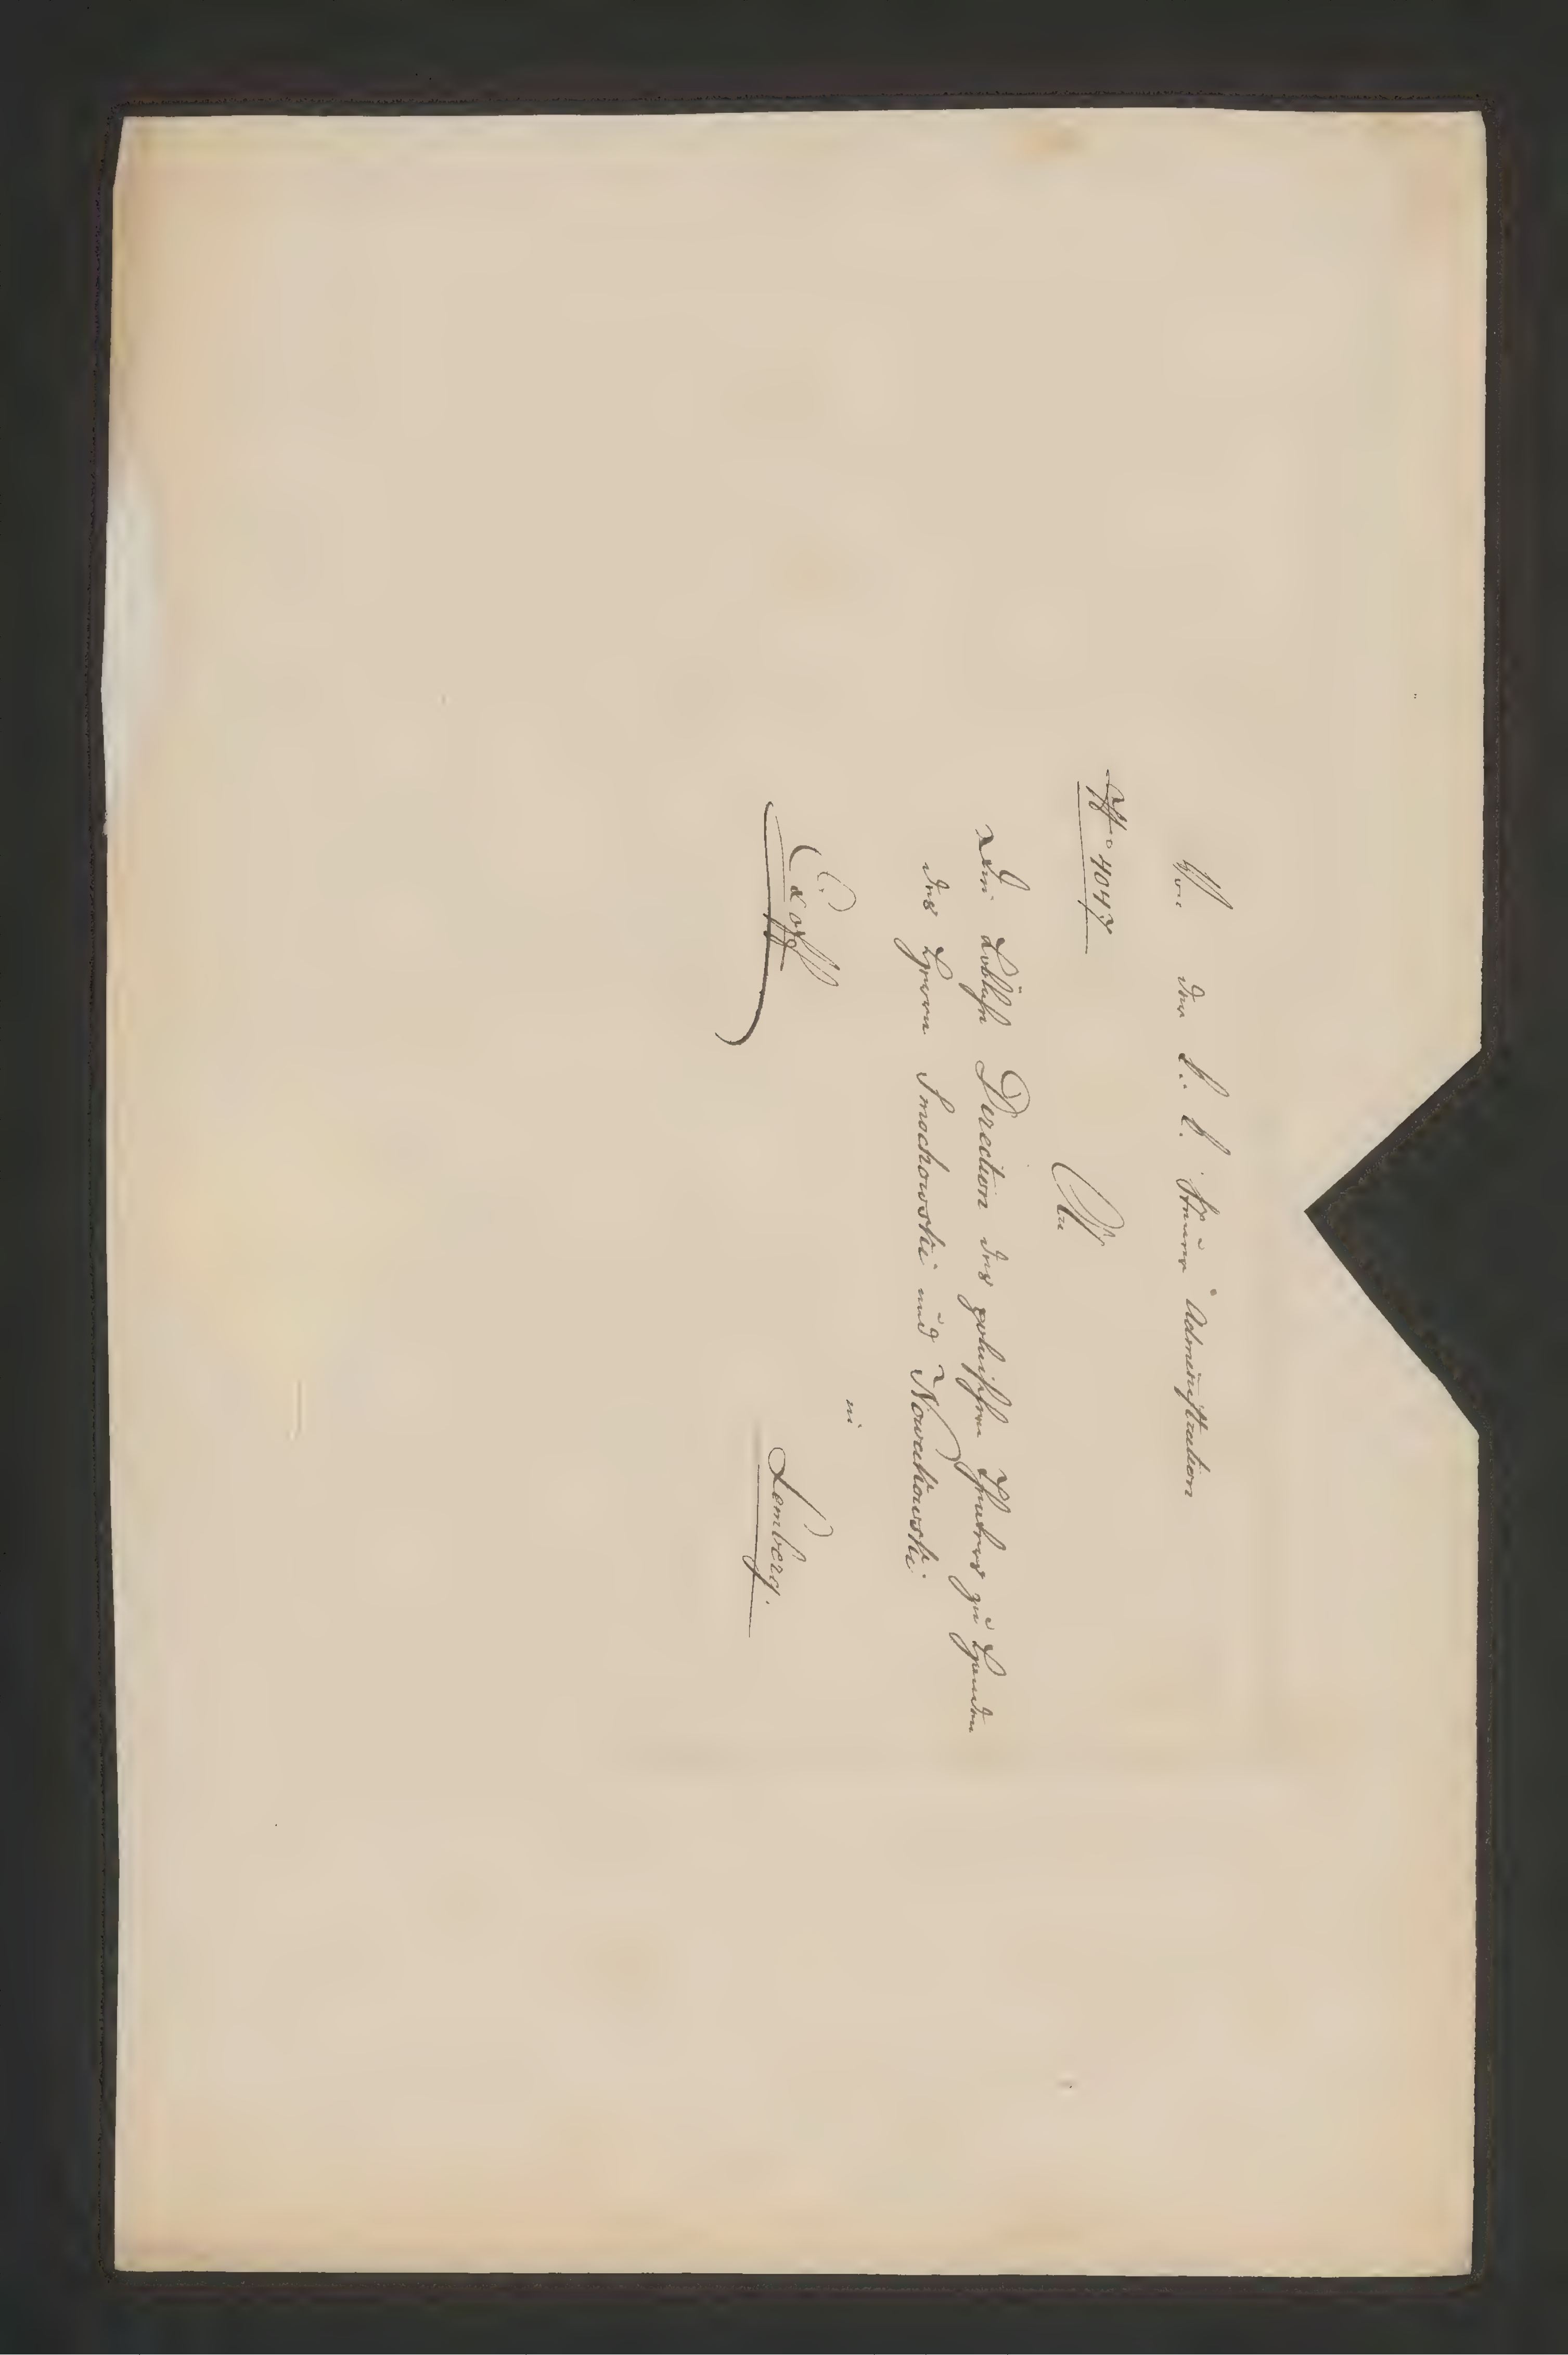 Von der k. k. Steuer Administration
No 4047
An
die Löbliche Direction des polnischen Theaters zu Handen
des Herrn Smochowski und Nowakowski
in
Ex offo
Lemberg.